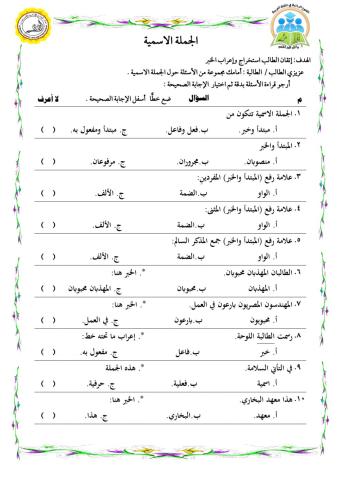 الجملة الاسمية
الهدف: إتقان الطالب استخراج وإعراب الخبر
عزيزي الطالب / الطالبة : أمامك مجموعة من الأسئلة حول الجملة الاسمية .
أرجو قراءة الأسئلة بدقة ثم اختيار الإجابة الصحيحة :
م السؤال ضع خطًا أسفل الإجابة الصحيحة . لا أعرف
١. الجملة الاسمية تتكون من
أ. مبتدأ وخبر. ب. فعل وفاعل. ج. مبتدأ ومفعول به. ( )
٢. المبتدأ والخبر
أ. منصوبان. ب. مجروران. ج. مرفوعان. ( )
٣. علامة رفع (المبتدأ والخبر) المفردين:
أ. الواو ب. الضمة ج. الألف. ( )
٤. علامة رفع (المبتدأ والخبر) المثنى:
أ. الواو ب. الضمة ج. الألف. ( )
٥. علامة رفع (المبتدأ والخبر) جمع المذكر السالم:
أ. الواو ب. الضمة ج. الألف. ( )
٦. الطالبان المهذبان محبوبان. *. الخبر هنا:
أ. المهذبان ب. محبوبان ج. المهذبان محبوبان ( )
٧. المهندسون المصريون بارعون في العمل. *. الخبر هنا:
أ. محبوبون ب. بارعون ج. في العمل. ( )
٨. رسمت الطالبة اللوحة. *. إعراب ما تحته خط:
أ. خبر ب. فاعل ج. مفعول به. ( )
٩. في التأني السلامة. *. هذه الجملة
أ. اسمية ب. فعلية. ج. حرفية. ( )
١٠. هذا معهد البخاري. *. الخبر هنا:
أ. معهد. ب. البخاري. ج. هذا. ( )